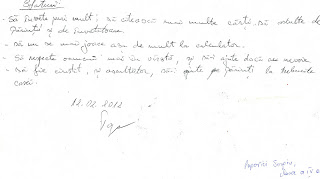 Sfaturi
- Să învețe mai mult, să citească mai multe cărți. Să asculte de
părinți și de învățătoare
- să nu se mai joace așa de mult la calculator.
- Să respecte oamenii mari în vârstă, și să-i ajute dacă au nevoie.
- să fie cinstit, și ascultător, să-i ajute pe părinți la treburile
casei.
12.02.2012
clasa a IV a